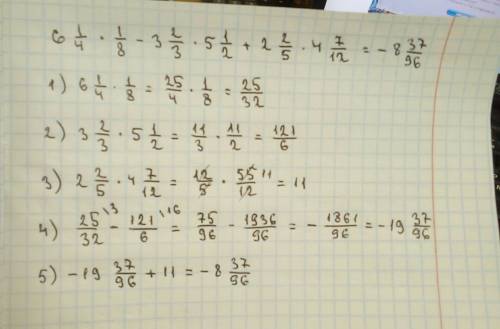 6 1/4 · 1/8 - 3 2/3 · 5 1/2 + 2 2/5 · 4 7/12 = - 8 37/96
1) 6 1/4 · 1/8 = 25/4 · 1/8 = 25/32
2) 3 2/3 · 5 1/2 = 11/3 · 11/2 = 121/6
3) 2 2/5 · 4 7/12 = 12/5 · 55 11/12 = 11
4) 25/32 \3 - 121/6 \16 = 75/96 - 1936/96 = - 1861/96 = -19 37/96
5) -19 37/96 + 11 = - 8 37/96